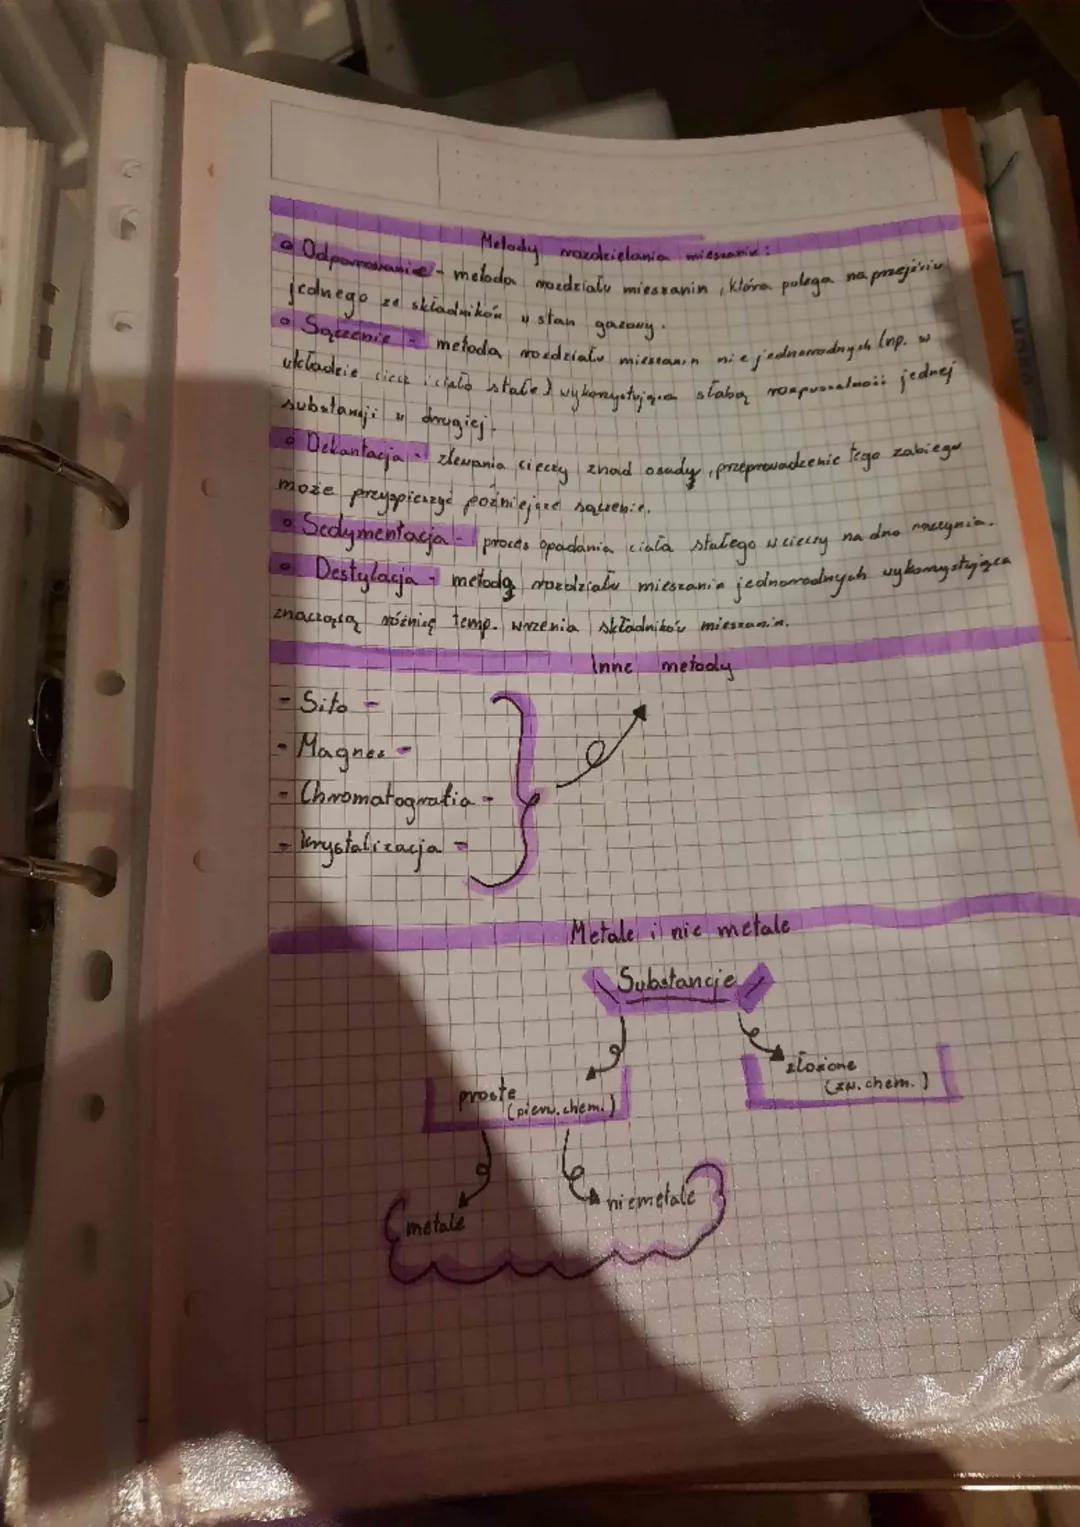 Metody rozdzielania mieszanin:
Odparowanie - metoda rozdziału mieszanin, która polega na przejściu
jednego ze składników w stan gazowy.
Sączenie - metoda rozdziału mieszanin niejednorodnych (np. w
układzie ciecz i ciało stałe) wykorzystująca słabą rozpuszczalność jednej
substancji w drugiej.
Dekantacja - zlewania cieczy znad osady, przeprowadzenie tego zabiegu
może przyspieszyć późniejsze sączenie.
Sedymentacja - proces opadania ciała stałego w cieczy na dno naczynia.
Destylacja - metodą rozdziału mieszanin jednorodnych wykorzystująca
znaczącą różnicę temp. wrzenia składników mieszanin.
Inne metody
- Sito -
- Magnes -
- Chromatografia -
- krystalizacja -
Metale i nie metale
Substancje
proste (pierw. chem.)
złożone (zw. chem.)
metale
niemetale